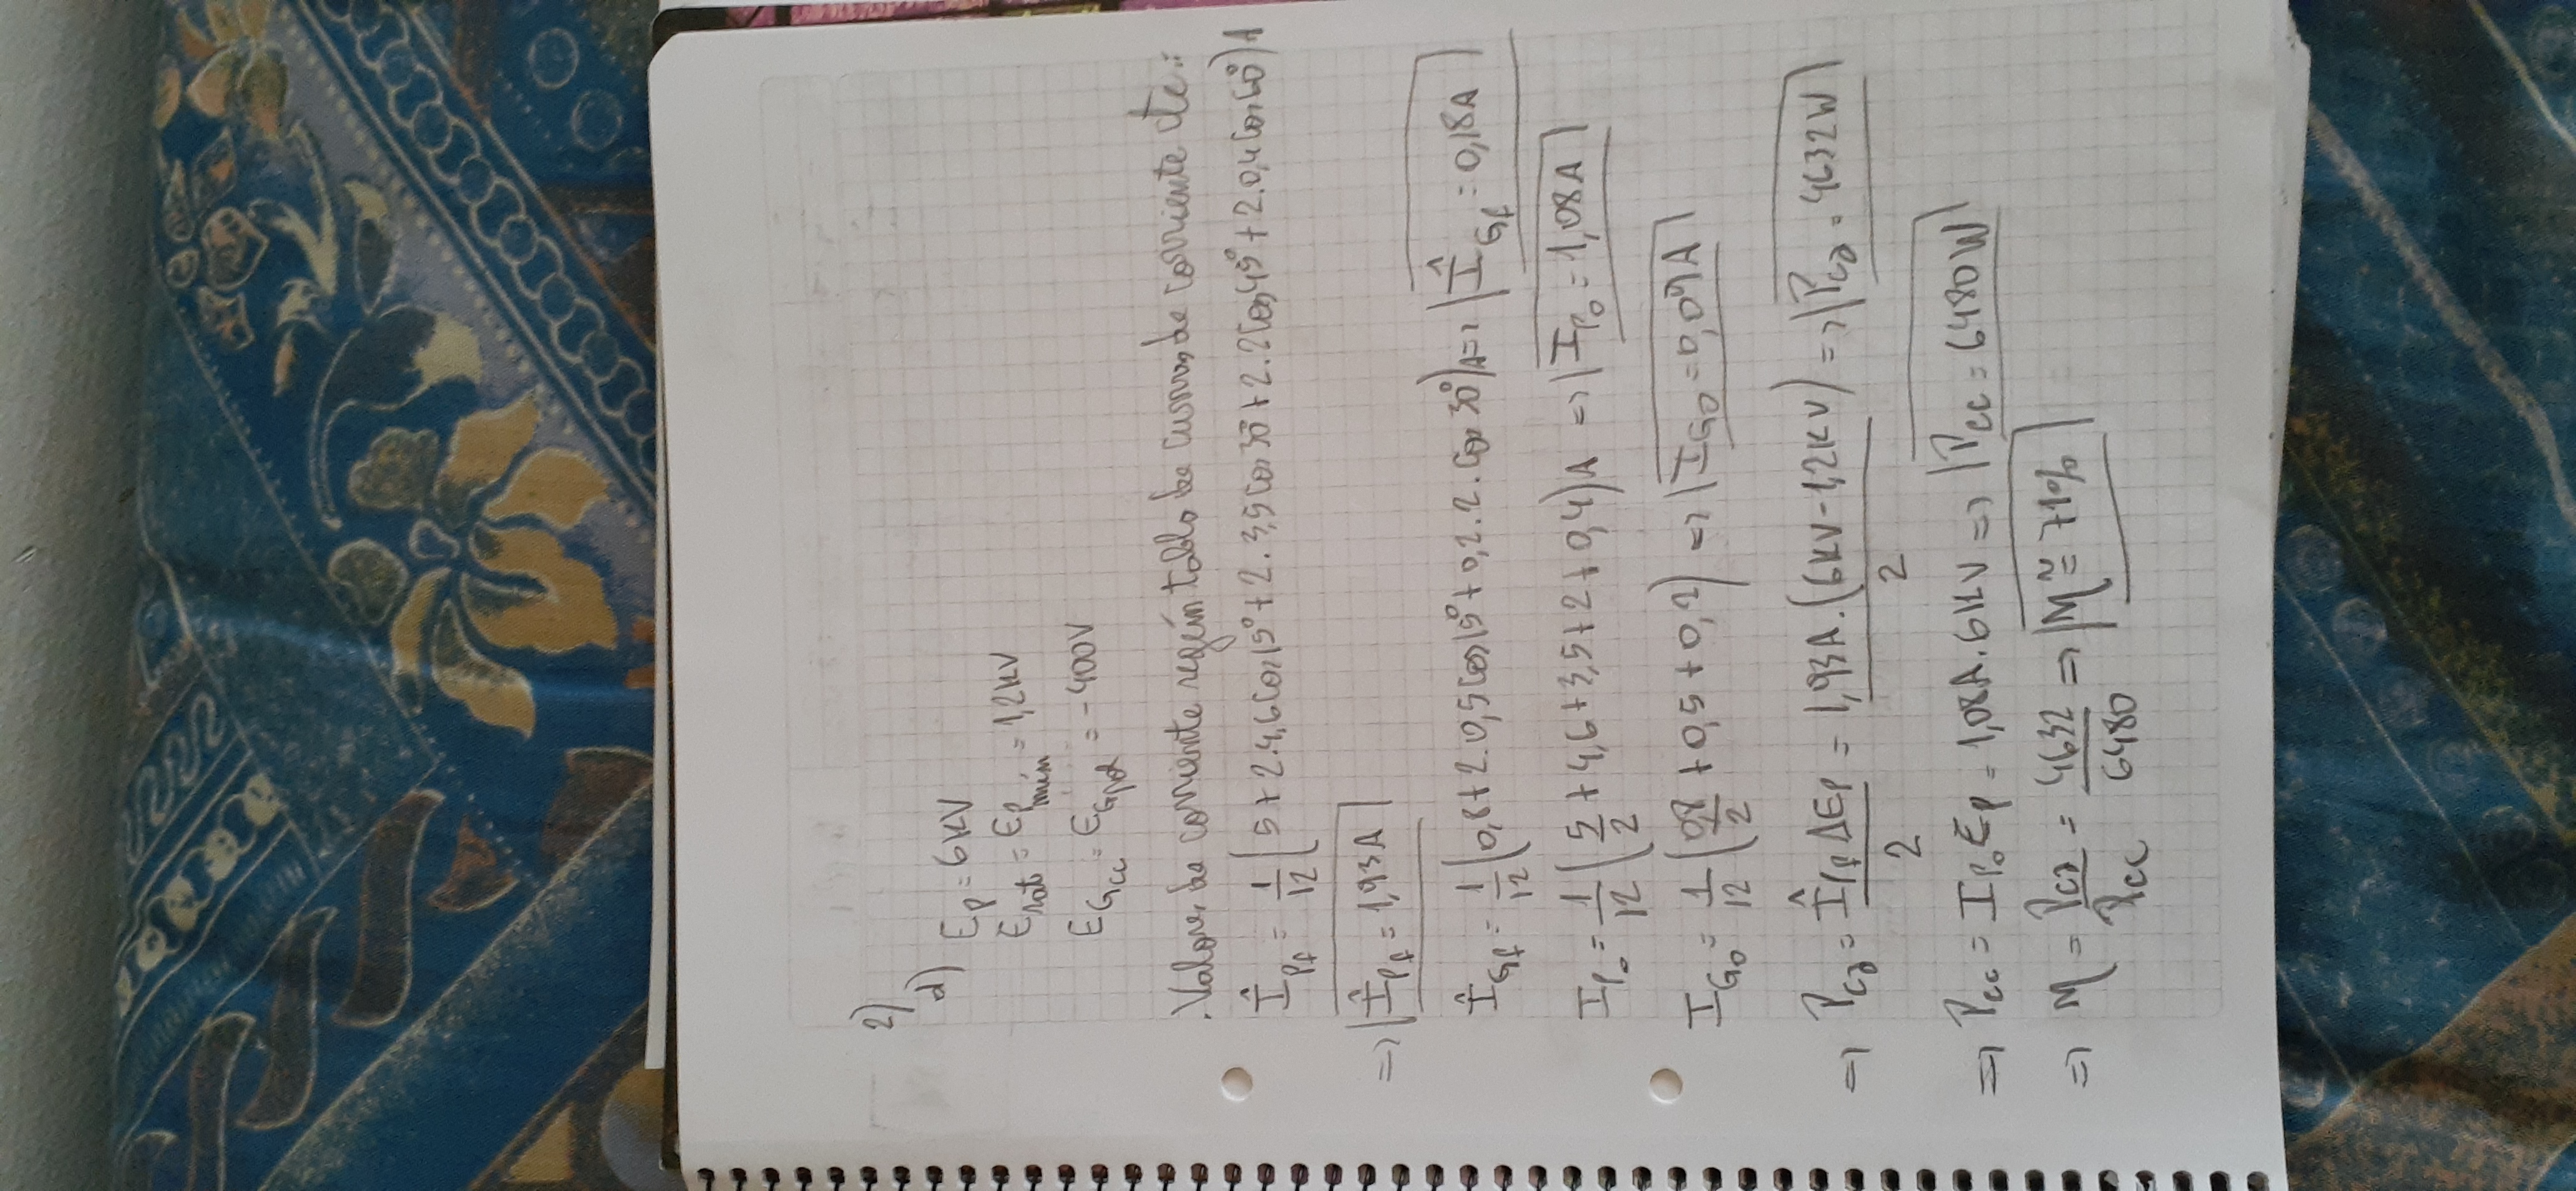 2)
d)
E_P = 6KV
E_sat = E_P mín = 1,2KV
E_Gcc = E_Gpol = -400V
. Valores de corriente según tabla de curvas de corriente cte.:
Î_Pf = 1/12 (5 + 2.4,6 Cos 15° + 2.3,5 Cos 30° + 2.2 Cos 45° + 2.0,4 Cos 60°) A
=> Î_Pf = 1,93A
Î_Gf = 1/12 (0,8 + 2.0,5 Cos 15° + 0,2.2. Cos 30°) A => Î_Gf = 0,18A
I_Po = 1/12 (5/2 + 4,6 + 3,5 + 2 + 0,4) A => I_Po = 1,08A
I_Go = 1/12 (0,8/2 + 0,5 + 0,2) => I_Go = 0,09A
=> P_ca = Î_Pf ΔE_P / 2 = 1,93A.(6KV - 1,2KV) / 2 => P_ca = 4632W
=> P_cc = I_Po E_P = 1,08A.6KV => P_cc = 6480W
=> η = P_ca / P_cc = 4632 / 6480 => η ≅ 71%